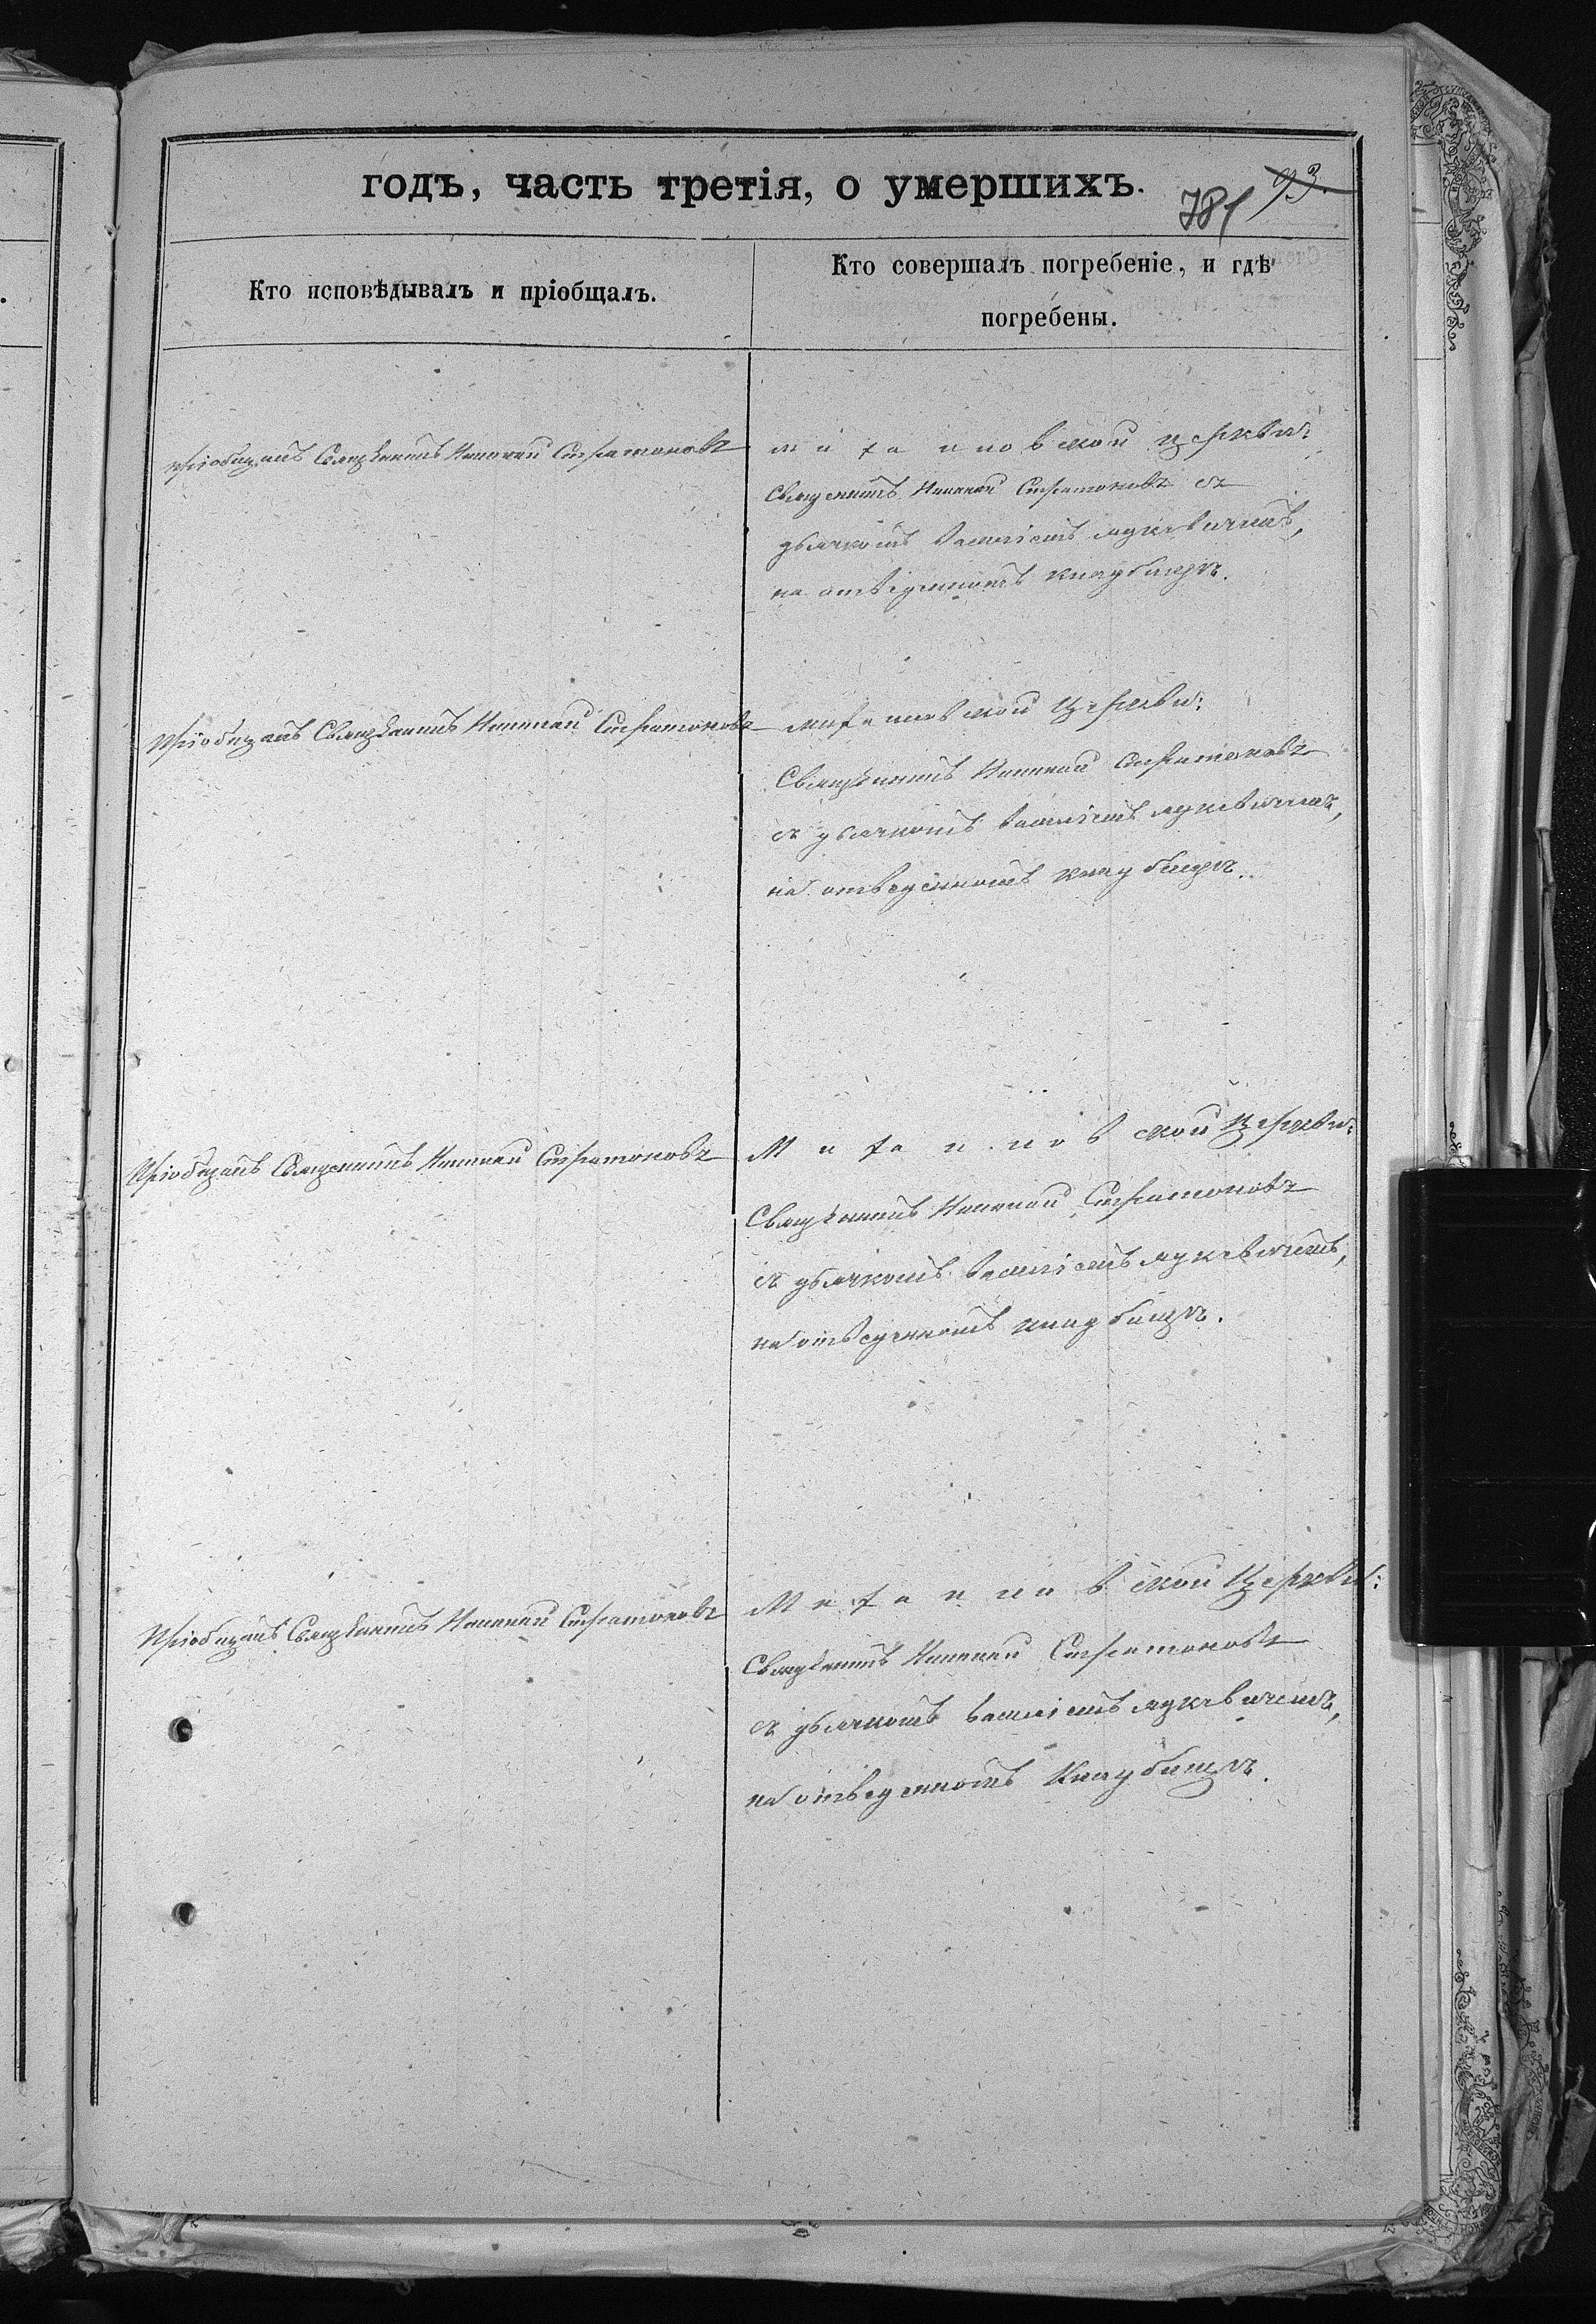 годъ, часть третія, о умершихъ.
781 93.
Кто исповѣдывалъ и пріобщалъ.
Кто совершалъ погребеніе, и гдѣ
погребены.
пріобщалъ Священникъ Николай Стратоновъ
церкви:
Священникъ Николай Стратоновъ съ
дьячкомъ Василіемъ Лукевичемъ,
на отведенномъ кладбищѣ.
Пріобщалъ Священникъ Николай Стратоновъ
Церкви:
Священникъ Николай Стратоновъ
съ дьячкомъ Василіемъ Лукевичемъ,
на отведенномъ кладбищѣ.
Пріобщалъ Священникъ Николай Стратоновъ
Церкви:
Священникъ Николай Стратоновъ
съ дьячкомъ Василіемъ Лукевичемъ,
на отведенномъ кладбищѣ.
Пріобщалъ Священникъ Николай Стратоновъ
Церкви:
Священникъ Николай Стратоновъ
съ дьячкомъ Василіемъ Лукевичемъ,
на отведенномъ Кладбищѣ.